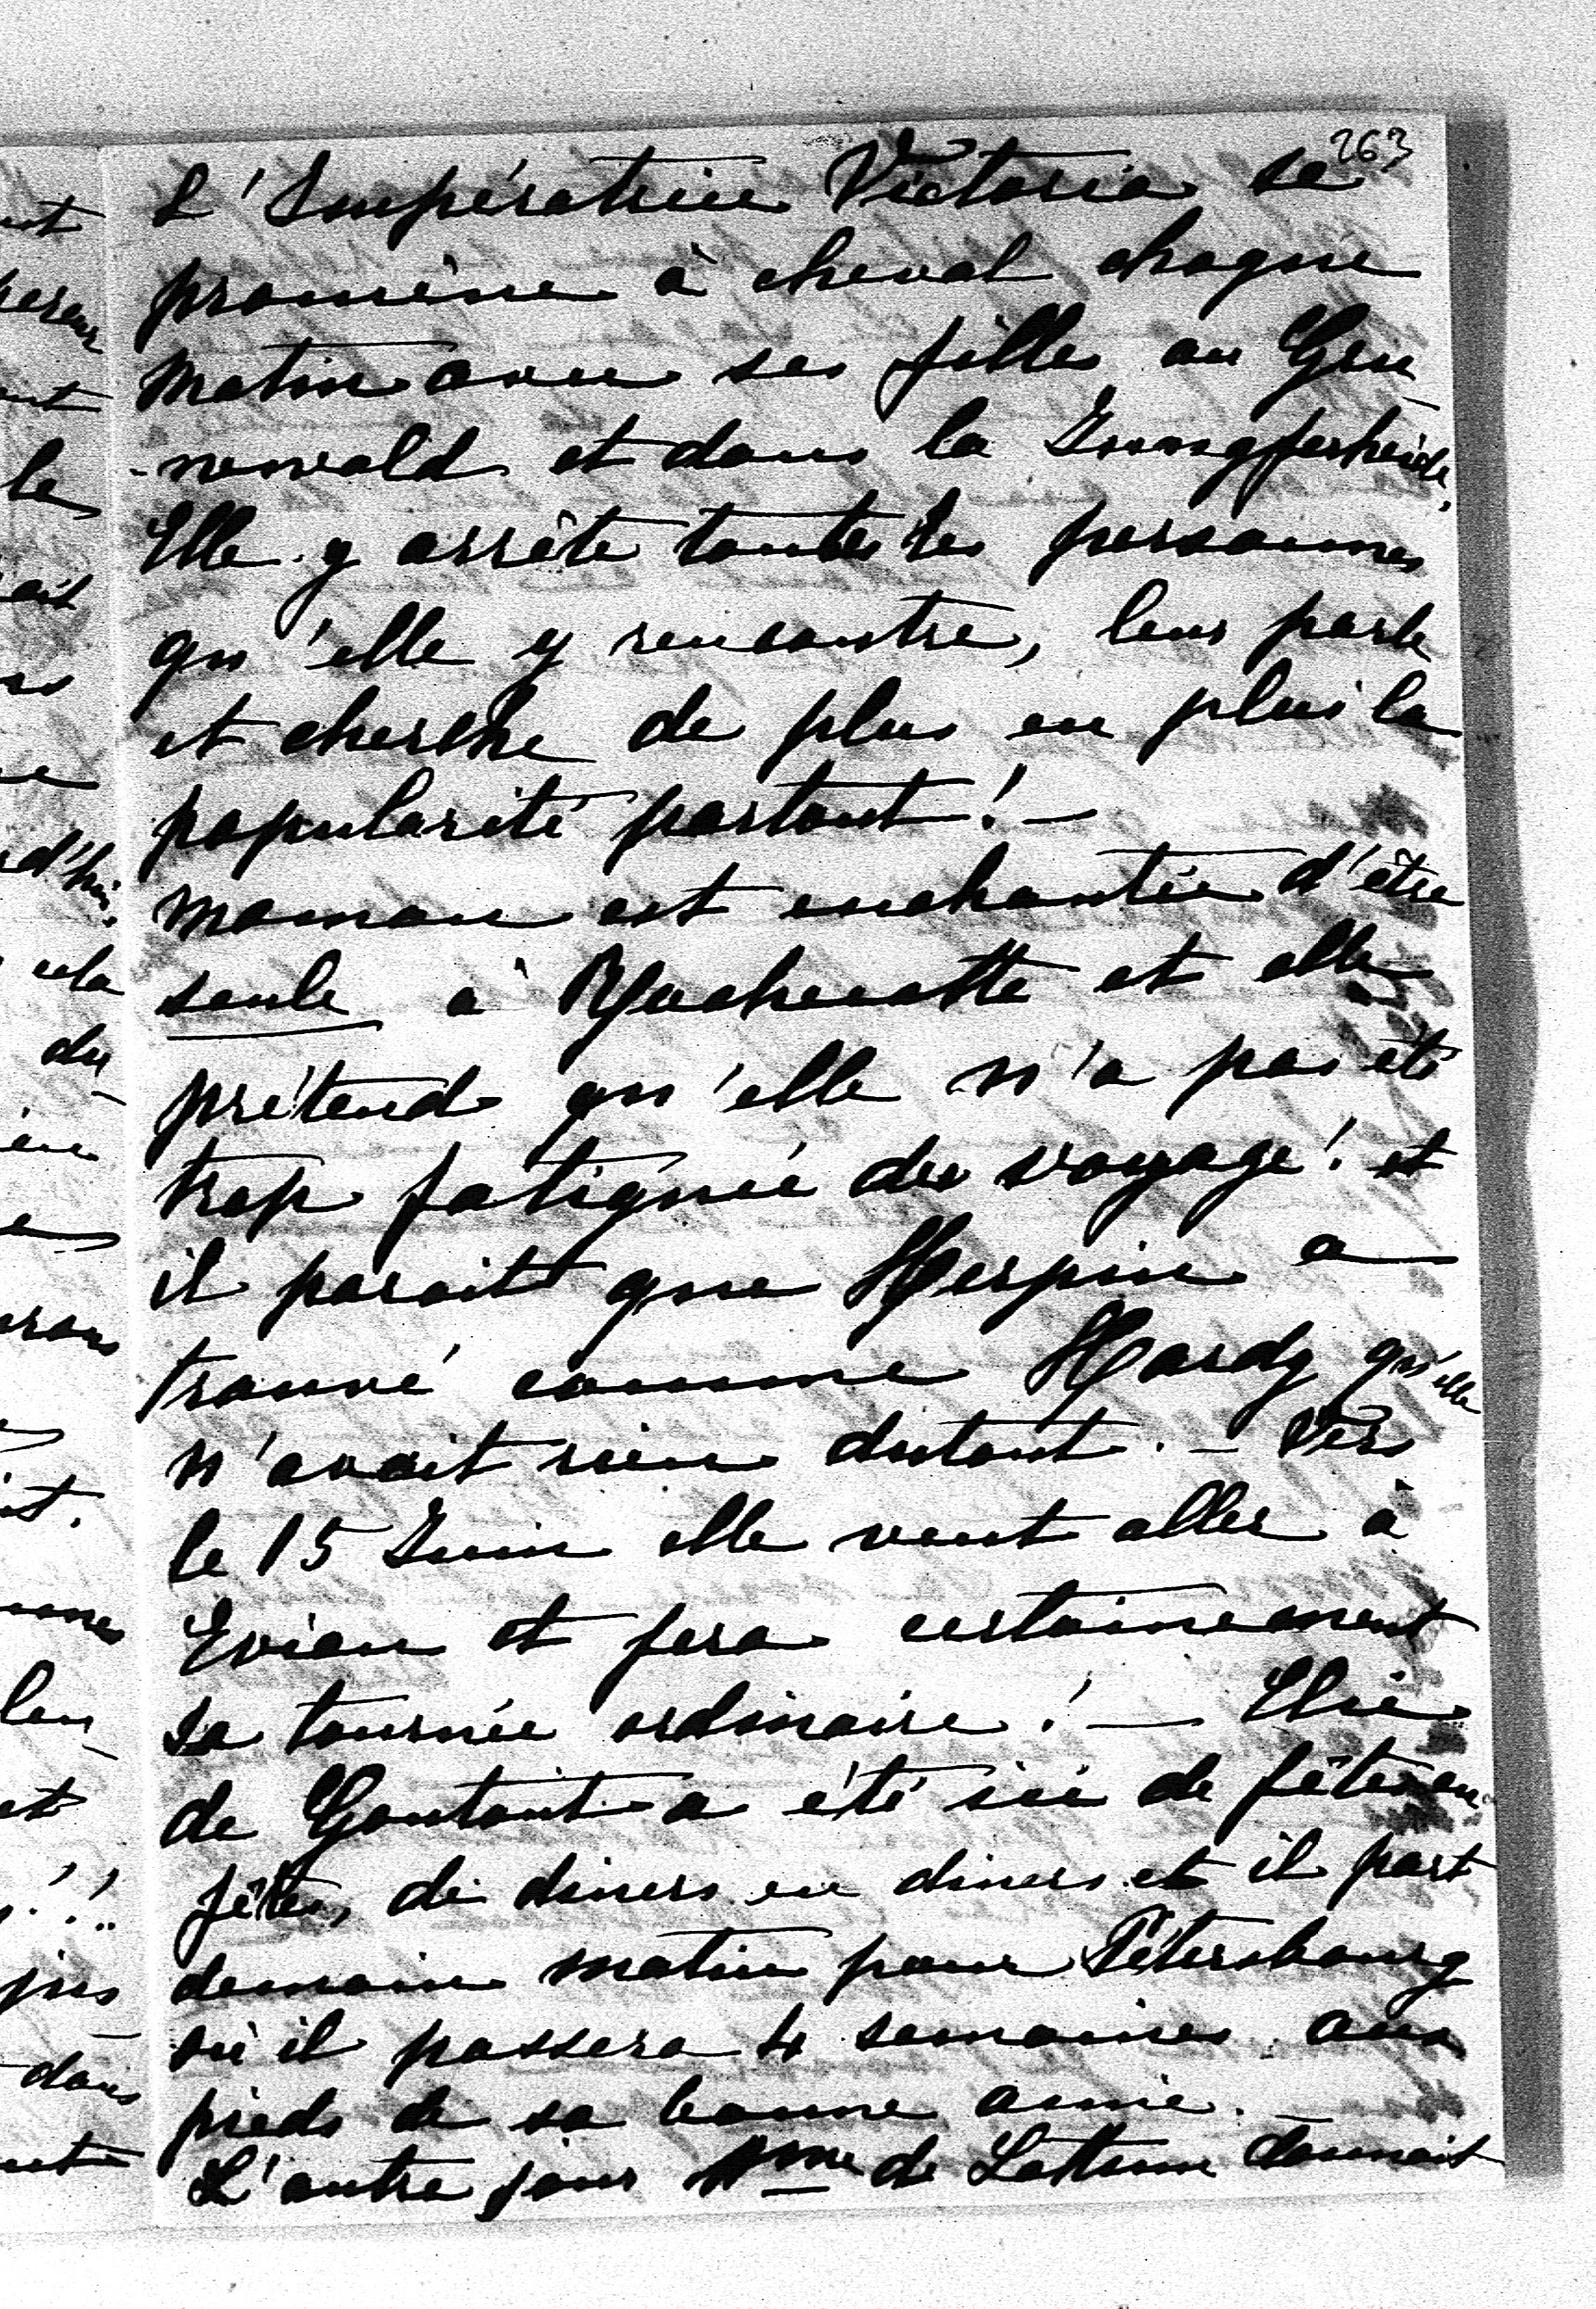 263
L'Impératrice Victoria se
promène à cheval chaque
matin avec ses filles au Gru
-newald et dans la Jungferheide,
Elle y arrête toutes les personnes
qu'elle y rencontre, leur parle
et cherche de plus en plus la
popularité partout! -
Maman est enchantée d'être
seule à Rochecotte et elle
prétend qu'elle n'a pas été
trop fatiguée du voyage! et
il parait que Herpin a
trouvé comme Hardy qu'elle
n'avait rien dutout. - Vers
le 15 Juin elle veut aller à
Evian et fera certainement
sa tournée ordinaire! - Elie
de Gontaut a été ici de fêtes en
fêtes, de diners en diners et il part
demain matin pour Pétersbourg
où il passera 4 semaines aux
pieds de sa bonne amie. -
L'autre jour Mme de donnait
le
d'hui.
cela
du
-
dans